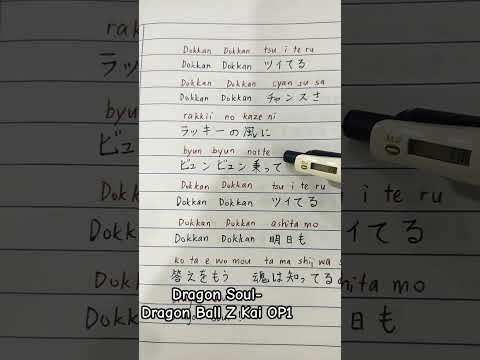 Dokkan Dokkan tsu i te ru
Dokkan Dokkan ツイてる
Dokkan Dokkan cyan su sa
Dokkan Dokkan チャンスさ
rakkii no kaze ni
ラッキーの風に
byun byun notte
ビュンビュン乗って
Dokkan Dokkan tsu i te ru
Dokkan Dokkan ツイてる
Dokkan Dokkan ashita mo
Dokkan Dokkan 明日も
ko ta e wo mou ta ma shij wa s
答えをもう 魂は知ってる
Dragon Soul-
Dragon Ball Z Kai OP1